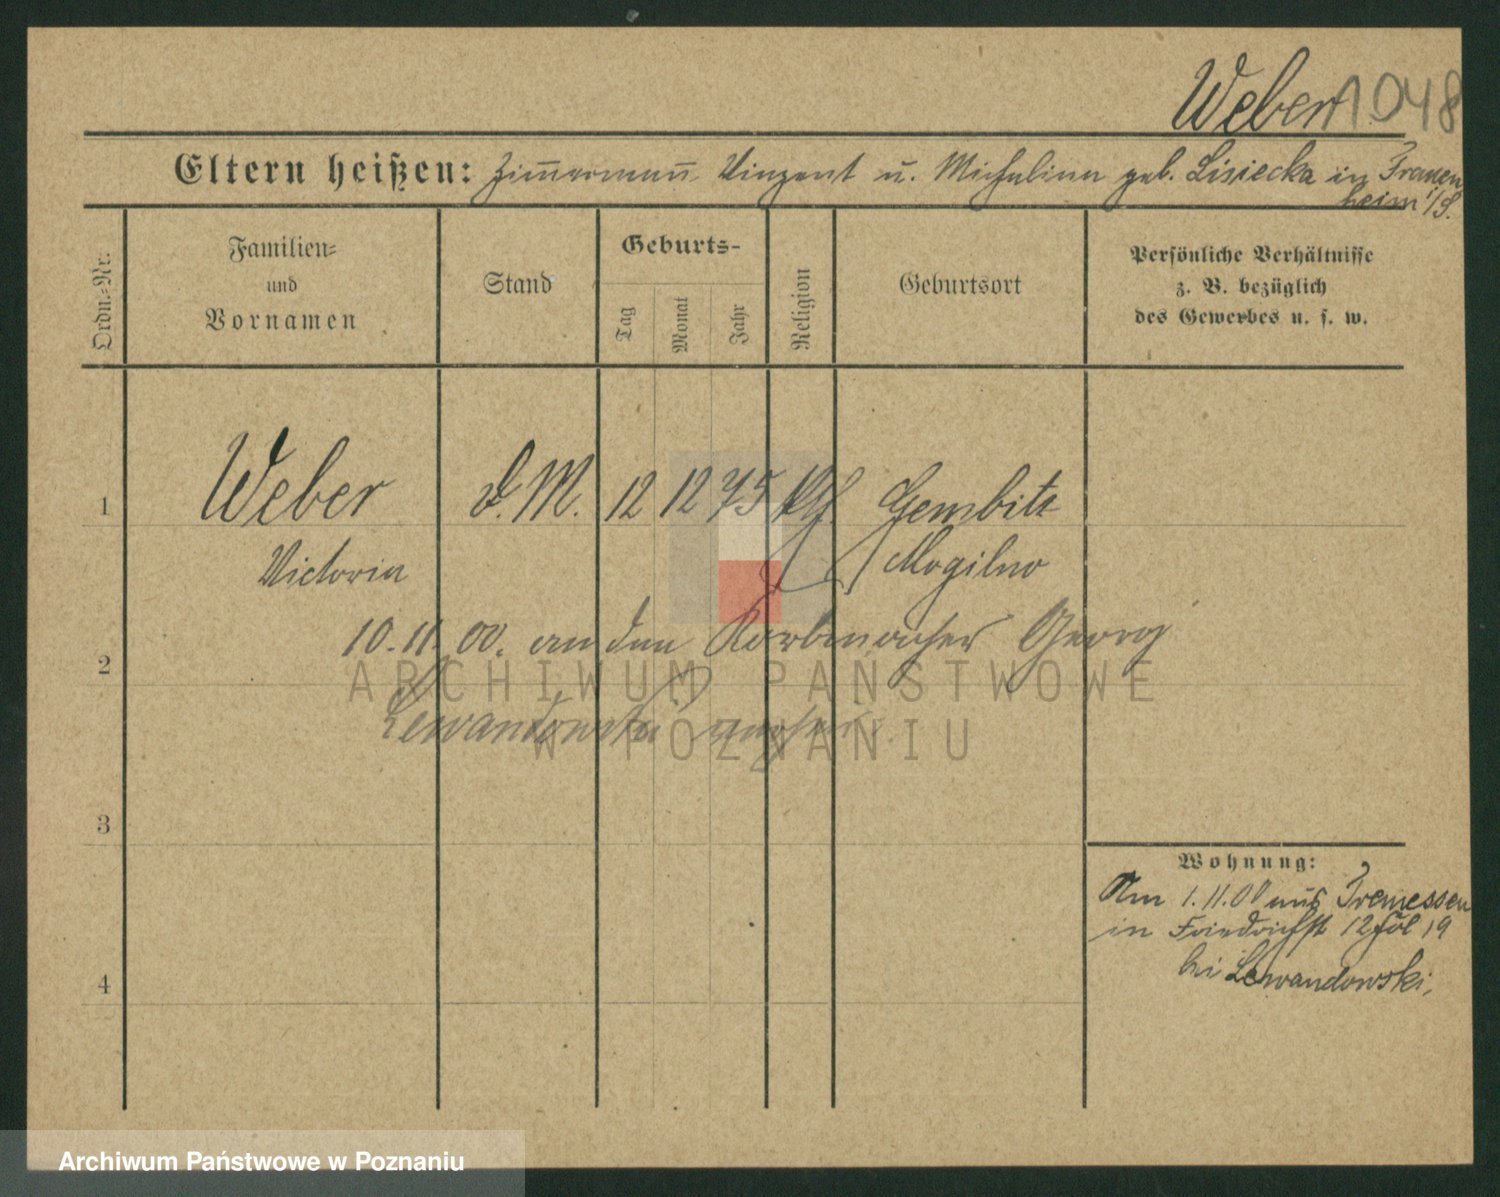 Weber 1048
Eltern heißen: Zimmermann Vinzent u. Michalina geb. Lisiecka in Frauen
heim i/S.
Ordn.-Nr.
Familien-
und
Vornamen
Stand
Geburts-
Tag
Monat
Jahr
Religion
Geburtsort
Persönliche Verhältnisse
z. B. bezüglich
des Gewerbes u. s. w.
1 Weber d. M. 12 12 75 Gembitz
Victoria Mogilno
10.11.00. an den Korbmacher Georg
2
Lewandowski
ARCHIWUM PAŃSTWOWE
W POZNANIU
3
Wohnung:
Am 1.11.00 aus Tremessen
in Friedrichst 12 19
bei Lewandowski.
4
Archiwum Państwowe w Poznaniu